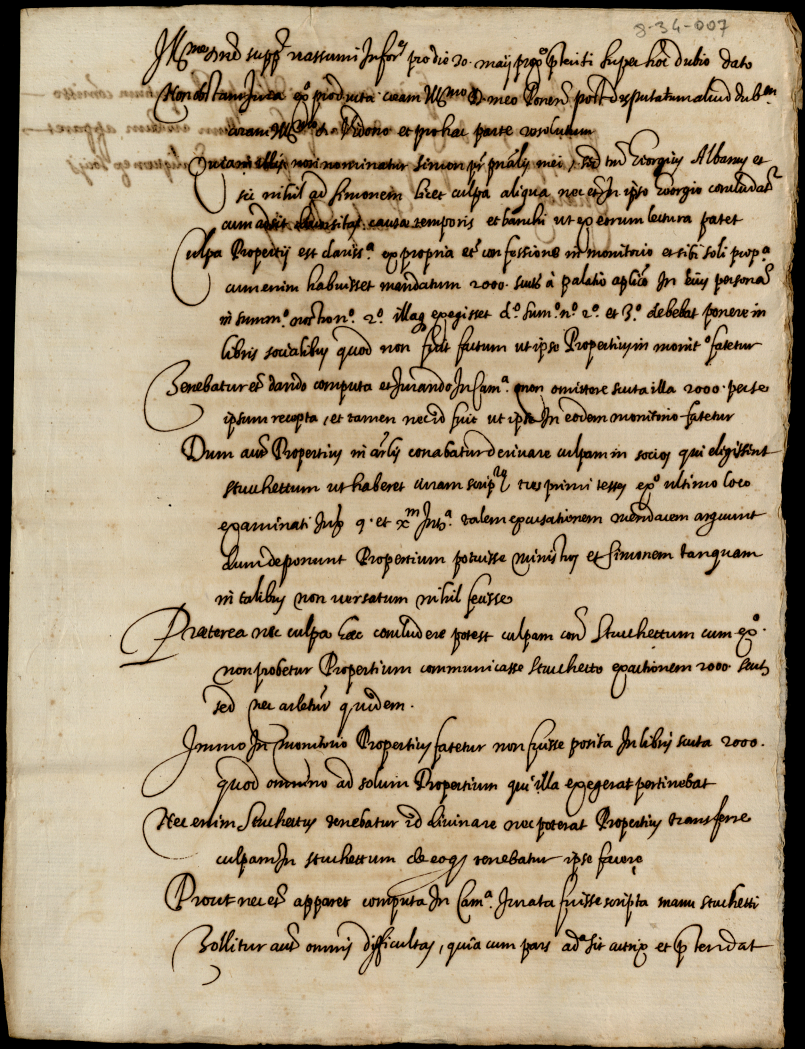 8-34-007
Ill.me d.ne supp.r rassumi Infor.o pro die 20. maij prox.o pteriti super hoc dubio dato
Non obstant Iura ex.o producta coram Ill.mo D. meo Ponen. post disputatum aliud dub.m
coram et pro hac parte resolutum
Quia in illis non nominatur Simon pr. pralis mei, sed tm. Georgius Albanus et
sic nihil ad Simonem licet culpa aliqua nec et. in ipso Georgio concludat.r
cum adsit diversitas causa temporis et banchi ut ex eorum lectura patet
Culpa Propertij est clariss.a ex propria et. confessione in monitorio et sibi soli prop.a
cum enim habuisset mandatum 2000. scut. à palatio aplico In eius persona
in summ.o nostro n.o 2.o illaq exegisset d.o sum.o n.o 2.o et 3.o debebat ponere in
libris socialibus quod non fuit factum ut ipse Propertius in monit.o fatetur
Tenebatur et. dando computa et Iurando In Cam.a non omittere scuta illa 2000. per se
ipsum recepta, et tamen nec id fuit ut ipse In eodem monitorio fatetur
Dum aut. Propertius in arlis conabatur derivare culpam in socios qui eligissent
Stuchettum ut haberet curam script.re tres primi testes ex.o ultimo loco
examinati sup 9. et x.m Int.a talem excusationem mendacem arguunt
dum deponunt Propertium potuisse ministros et Simonem tanquam
in talibus non versatum nihil scisse
Præterea nec culpa hæc concludere potest culpam con. Stuchettum cum ex.o
non probetur Propertium communicasse Stuchetto exactionem 2000. scut.
sed nec arletur quidem.
Immo In monitorio Propertius fatetur non fuisse posita In libris scuta 2000.
quod omnino ad solum Propertium qui illa exegerat pertinebat
Nec enim Stuchettus tenebatur id divinare nec poterat Propertius transferre
culpam In Stuchettum de eo q tenebatur ipse facere
Prout nec et. apparet computa In Cam.a Iurata fuisse scripta manu Stuchetti
Tollitur aut. omnis difficultas, quia cum pars ad.a sit actrix et p tendat